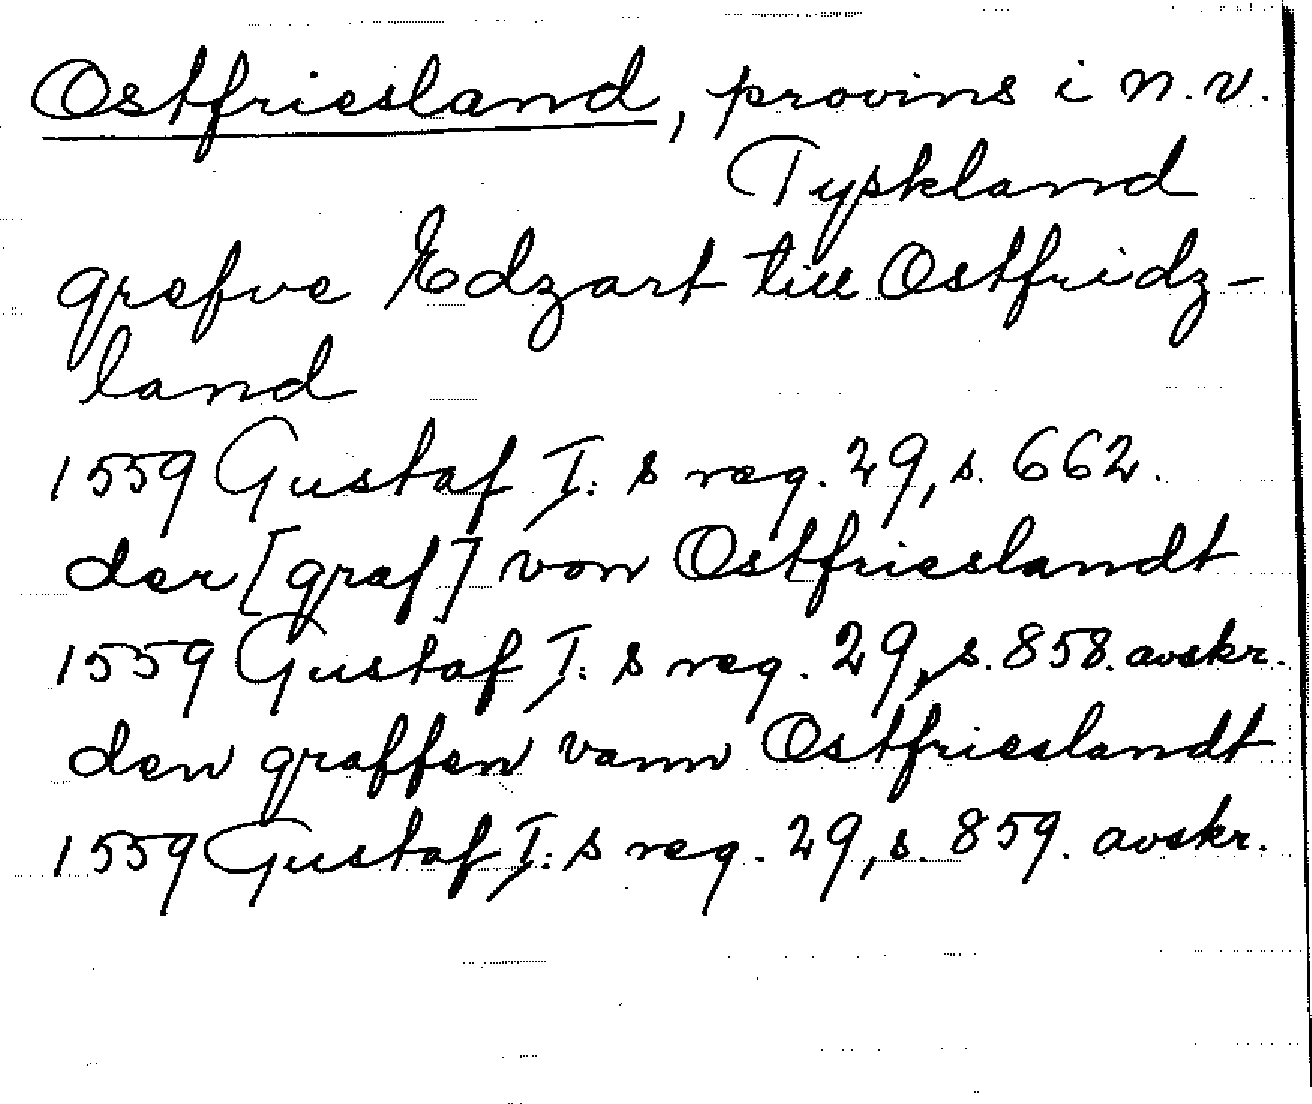 Ostfriesland, provins i n.v.
Tyskland
grefve Edzart till Ostfridz-
land
1559 Gustaf I:s reg. 29, s. 662.
der [graf] von Ostfrieslandt
1559 Gustaf I:s reg. 29, s. 858. avskr.
den graffen vann Ostfrieslandt
1559 Gustaf I:s reg. 29, s. 859. avskr.